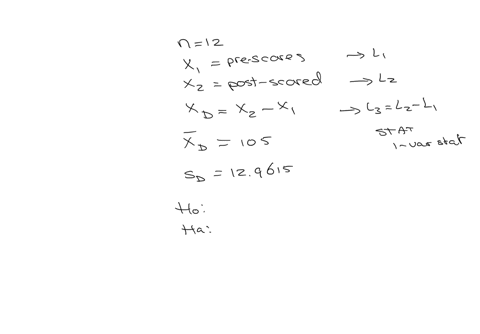 n=12
X₁ = pre-scores → L₁
X₂ = post-scored → L₂
X_D = X₂ - X₁ → L₃ = L₂ - L₁
STAT
1-var stat
X̄_D = 105
S_D = 12.9615
Ho:
Ha: